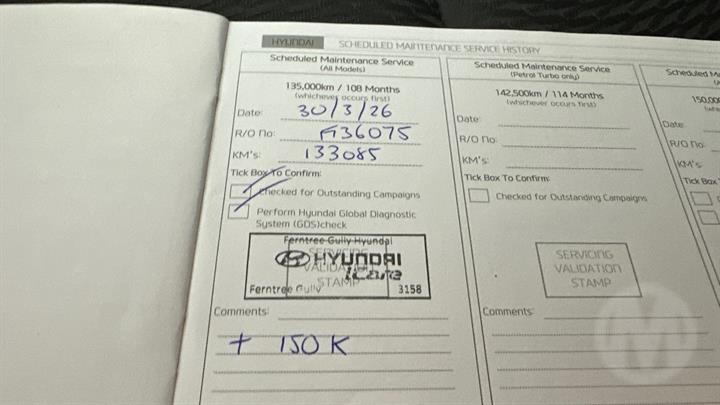 HYUNDAI SCHEDULED MAINTENANCE SERVICE HISTORY
Scheduled Maintenance Service
(All Models)
135,000km / 108 Months
(whichever occurs first)
Date: 30/3/26
R/O No:
KM's: 133085
Tick Box To Confirm:
Checked for Outstanding Campaigns
Perform Hyundai Global Diagnostic
System (GDS)check
Ferntree Gully Hyundai
SERVICING
HYUNDAI
VALIDATION
iCare
STAMP
Ferntree Gully 3158
Comments:
+ 150K
Scheduled Maintenance Service
(Petrol Turbo only)
142,500km / 114 Months
(whichever occurs first)
Date:
R/O No:
KM's:
Tick Box To Confirm:
Checked for Outstanding Campaigns
SERVICING
VALIDATION
STAMP
Comments:
Scheduled
150,00
Date:
R/O No:
KM's:
Tick Box
M